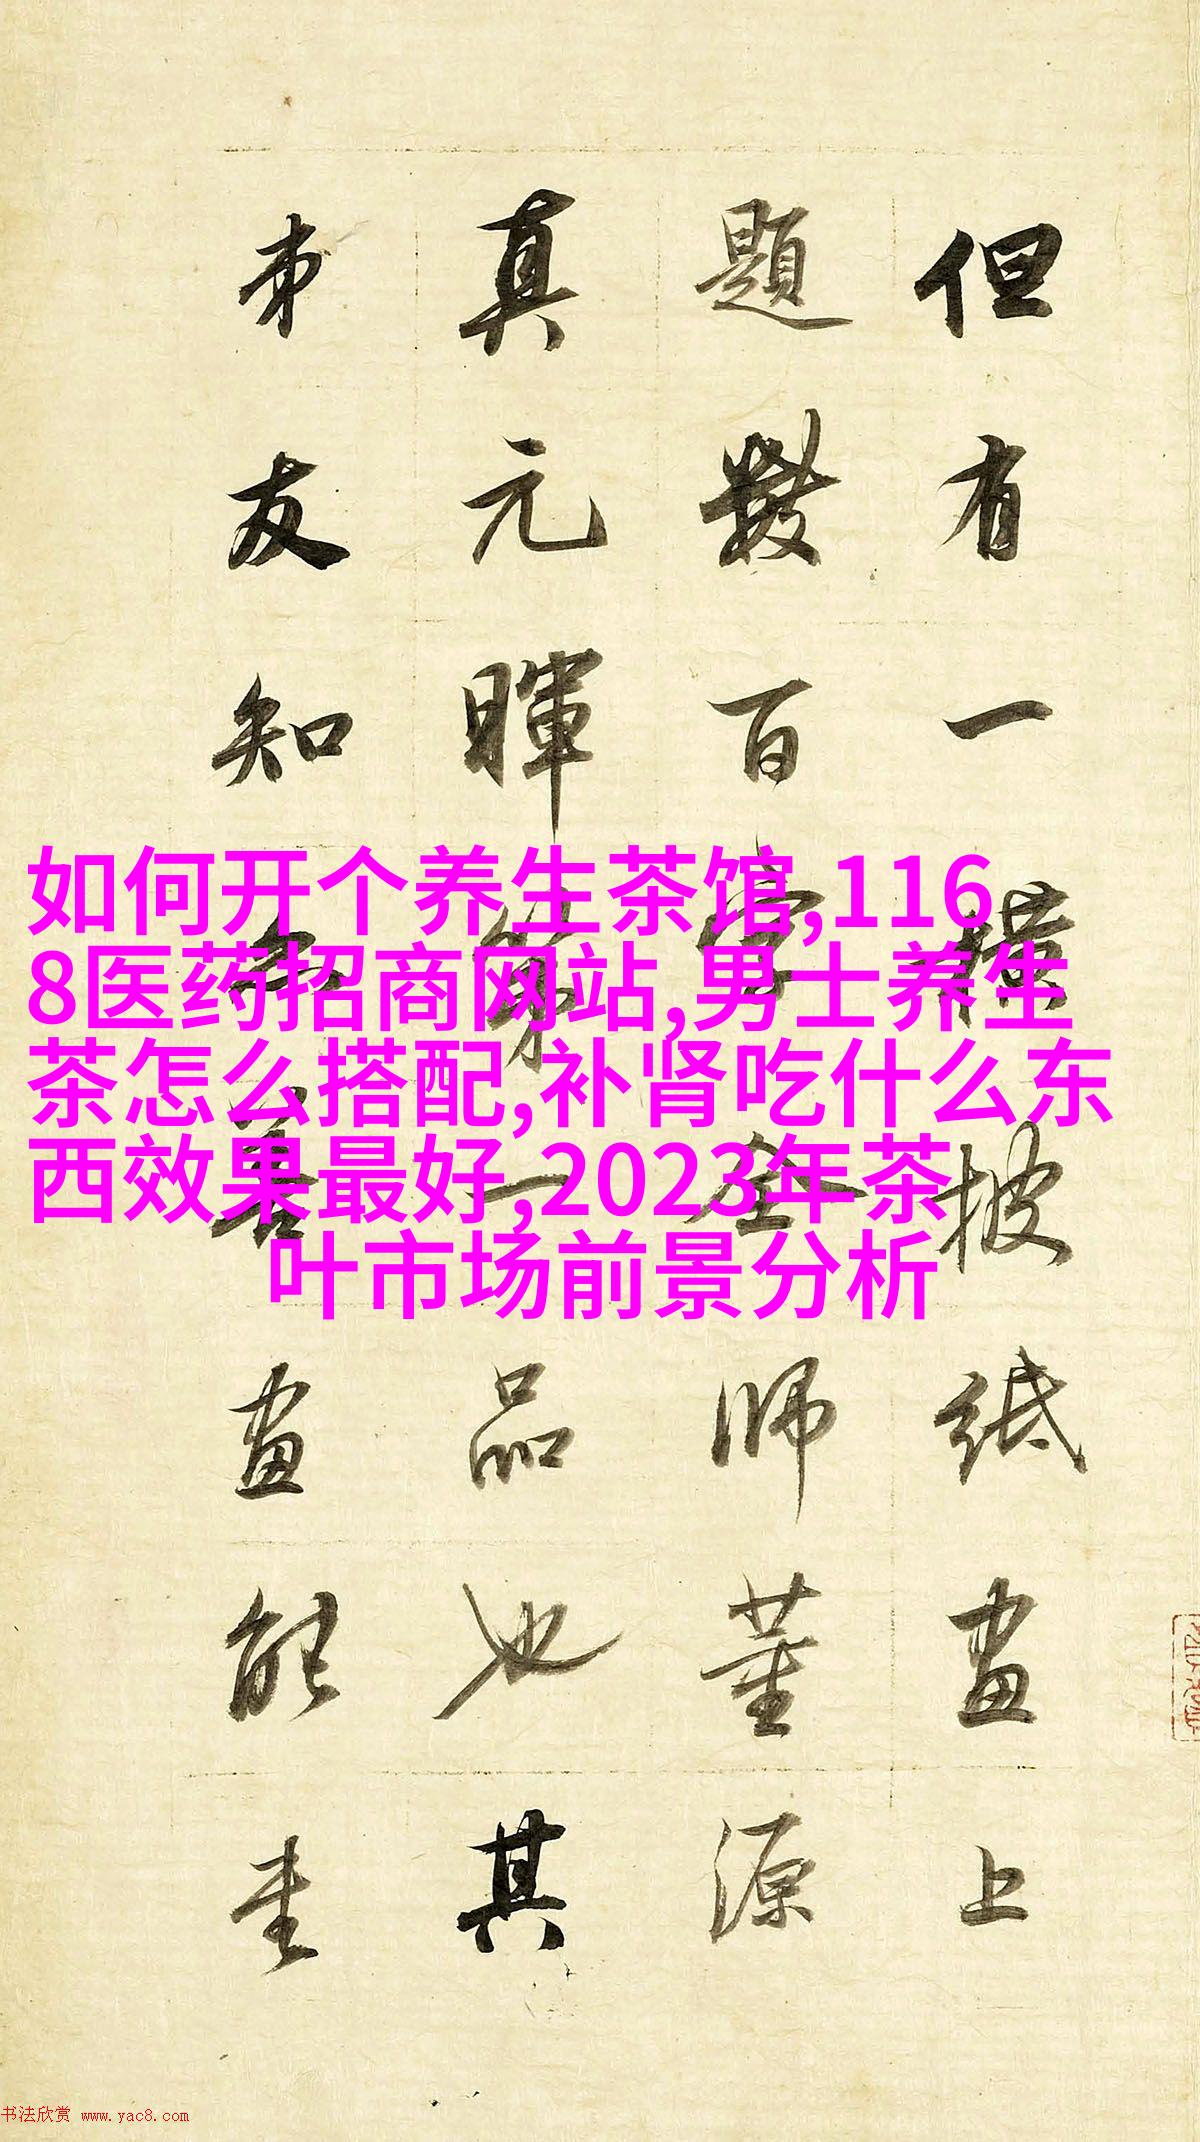 但有一橫披紙畫上
題數百字全師董源
真元暉第一品也其
弟友知善畫能書
如何开个养生茶馆,116
8医药招商网站,男士养生
茶怎么搭配,补肾吃什么东
西效果最好,2023年茶
叶市场前景分析
书法欣赏 www.yac8.com